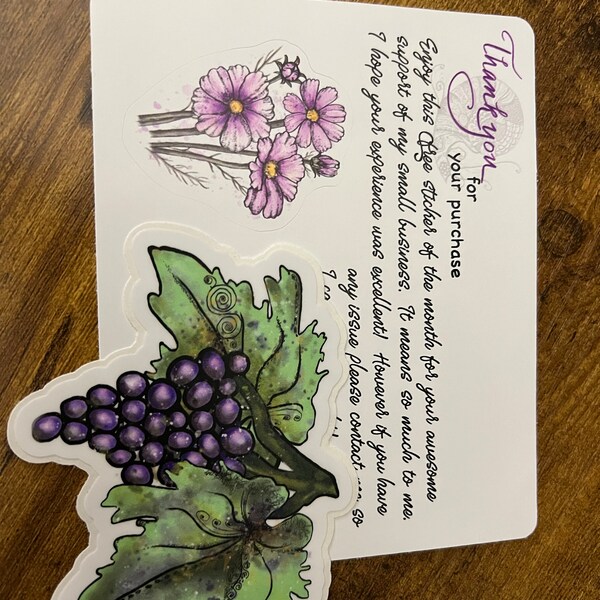 Thank you
for
your purchase
Enjoy this free sticker of the month for your awesome
support of my small business. It means so much to me.
I hope your experience was excellent! However if you have
any issue please contact so
I